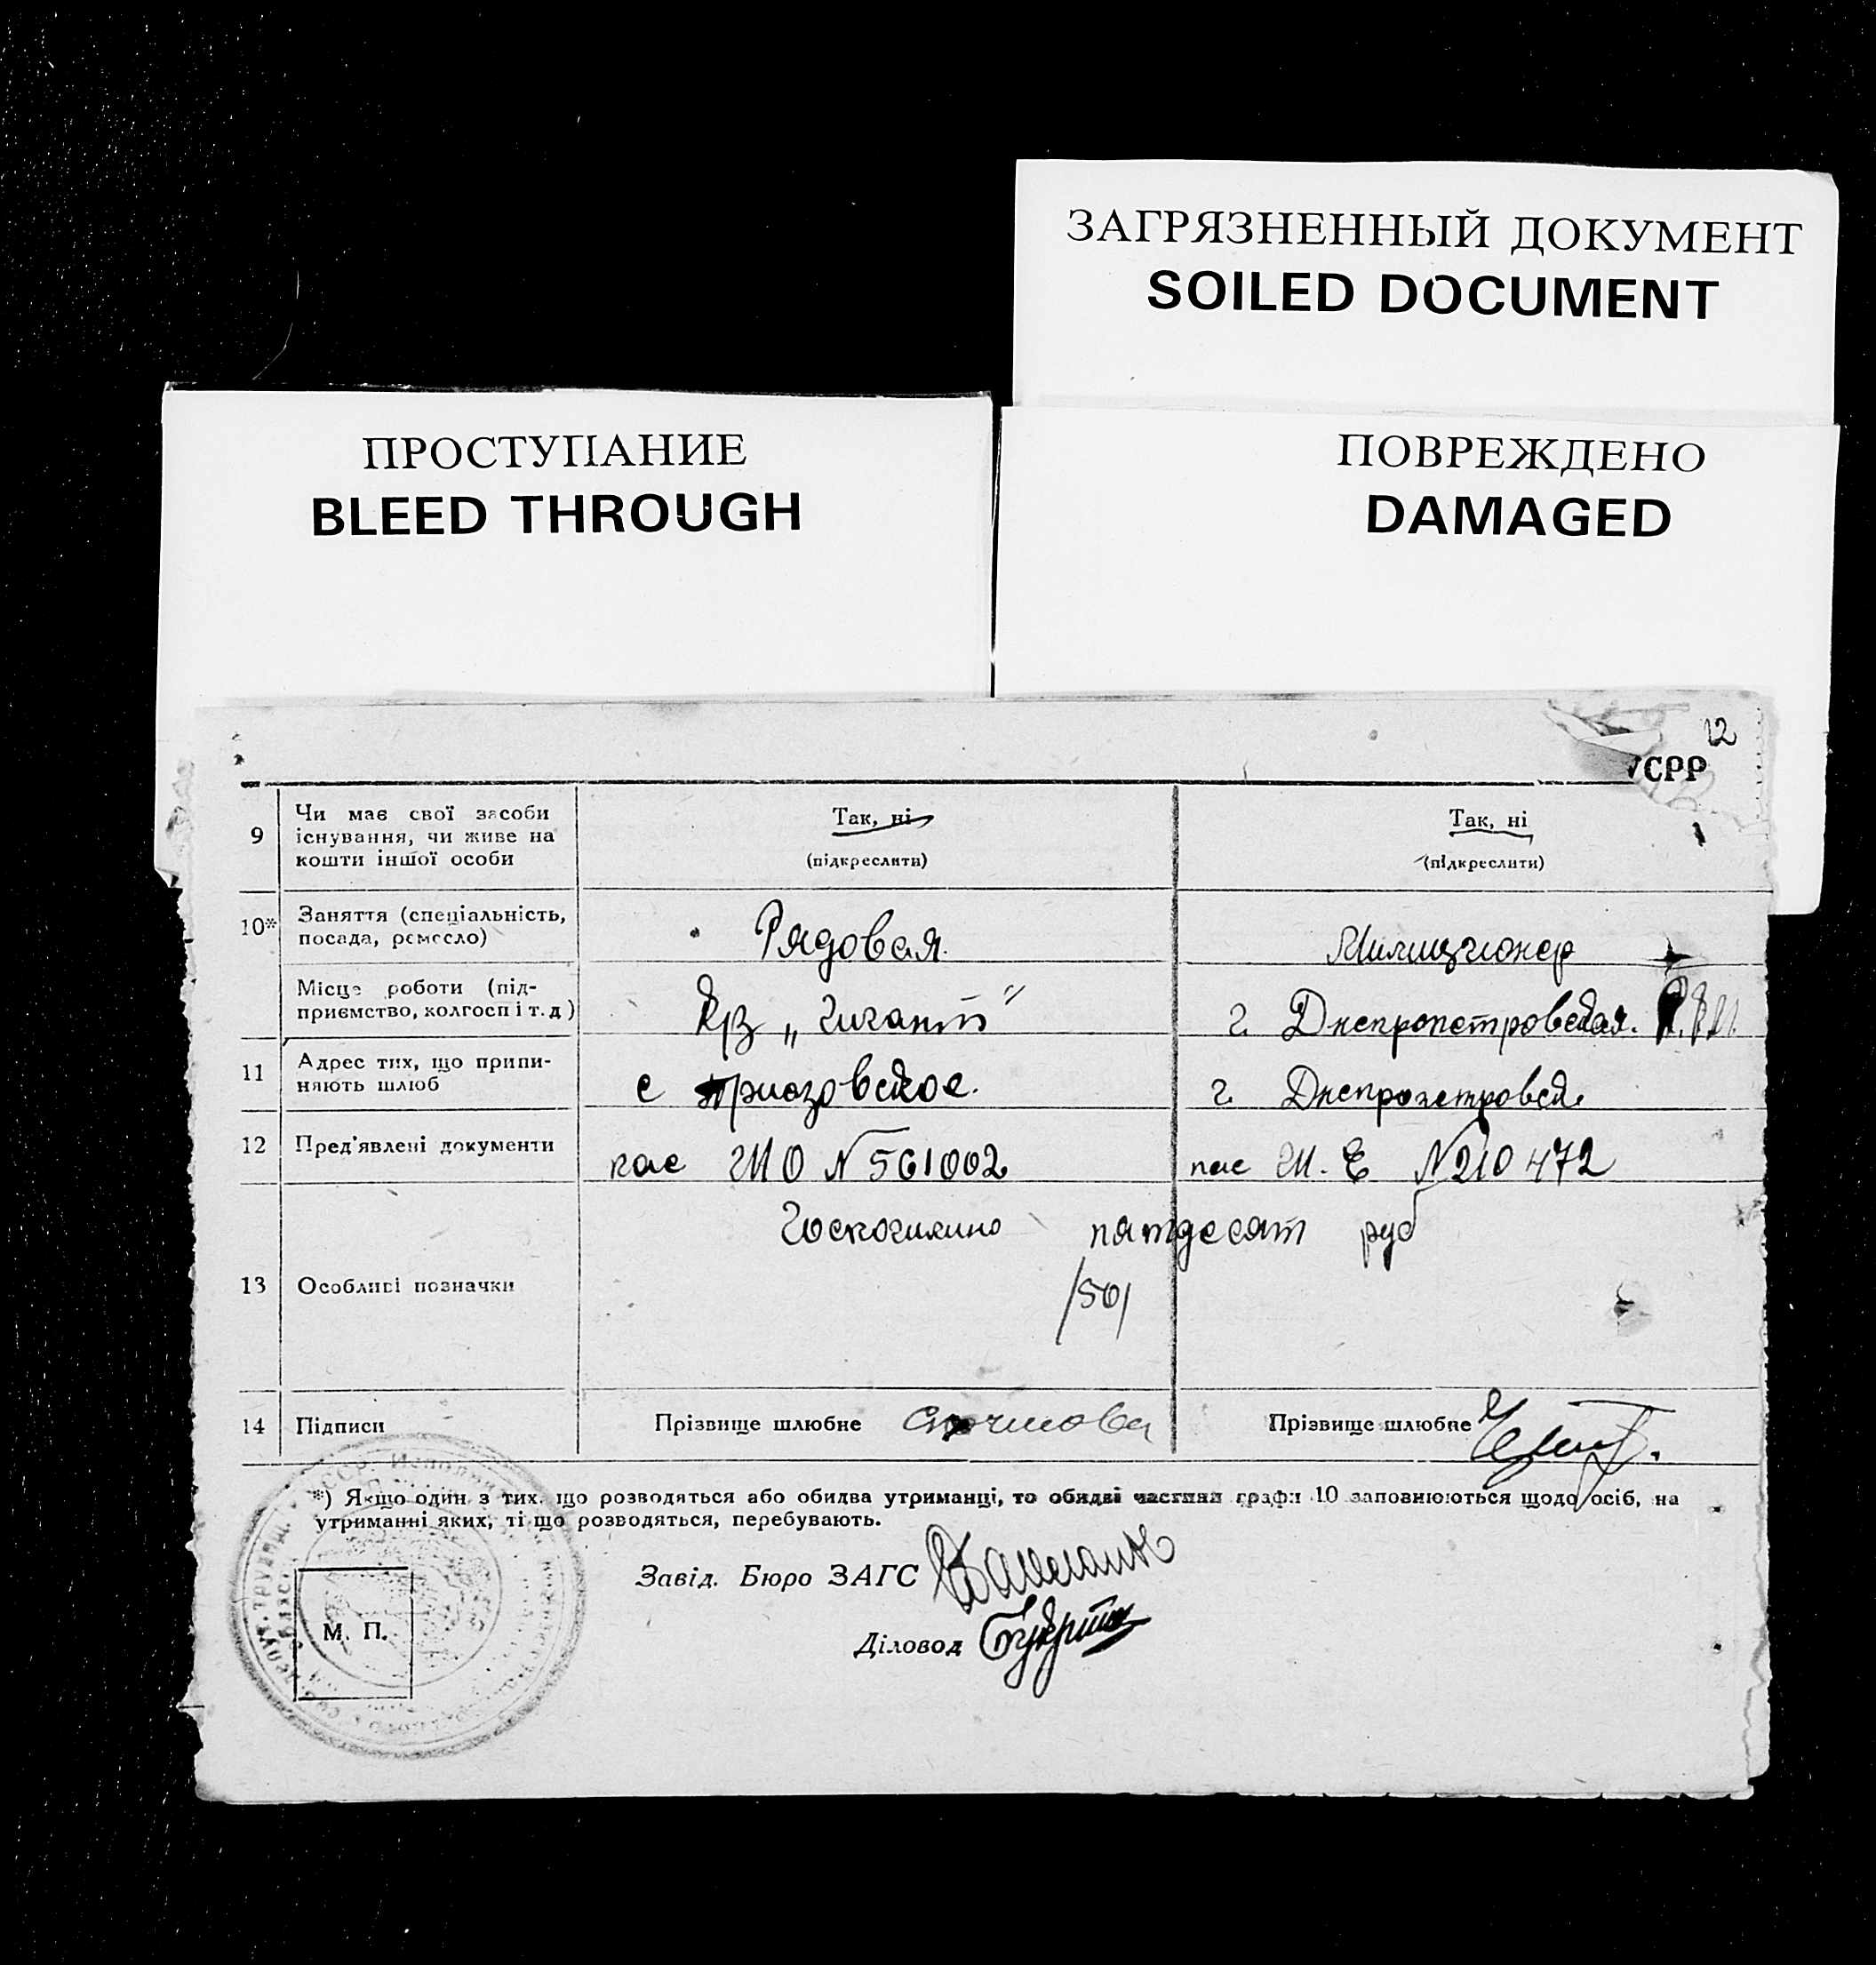 ЗАГРЯЗНЕННЫЙ ДОКУМЕНТ
SOILED DOCUMENT
ПРОСТУПАНИЕ
BLEED THROUGH
ПОВРЕЖДЕНО
DAMAGED
12
УСРР
9 Чи має свої засоби існування, чи живе на кошти іншої особи
Так, ні
(підкреслити)
Так, ні
(підкреслити)
10* Заняття (спеціальність, посада, ремесло)
Рядовая
Милиционер
Місце роботи (підприємство, колгосп і т. д)
"Гигант"
г. Днепропетровская.
11 Адрес тих, що припиняють шлюб
с Приазовское.
г. Днепропетровск
12 Пред'явлені документи
пас ШО № 561002
пас Ш. Е №210472
13 Особливі позначки
Госпошлина пятдесят руб
/50/
14 Підписи
Прізвище шлюбне
Прізвище шлюбне
*) Якщо один з тих, що розводяться або обидва утриманці, то обидві частини графи 10 заповнюються щодо осіб, на
утриманні яких, ті що розводяться, перебувають.
Завід. Бюро ЗАГС
Діловод
М. П.